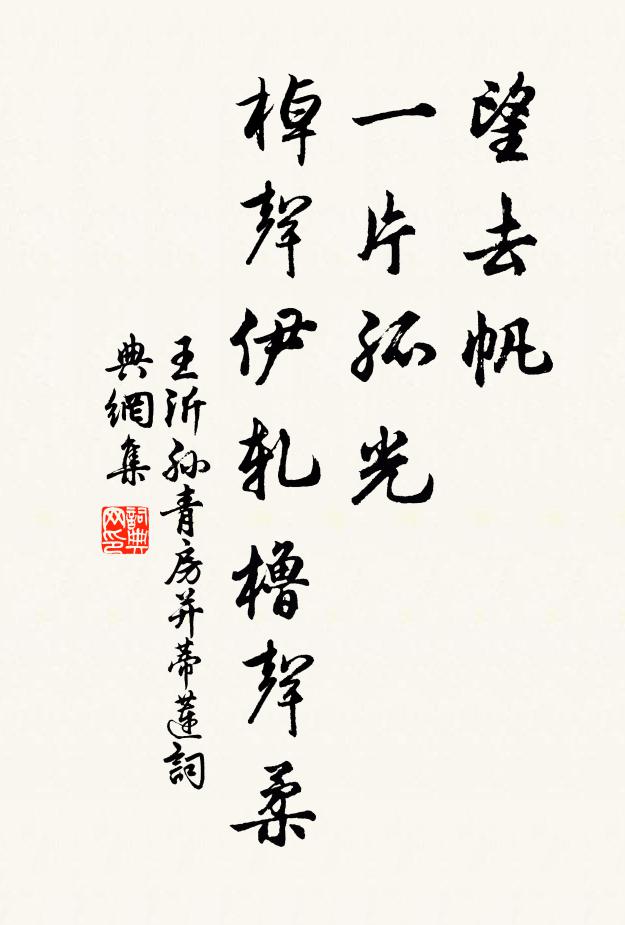 望去帆
一片孤光
棹聲伊軋櫓聲柔
王沂孫青房并蒂蓮詞
典網集
詞典網印